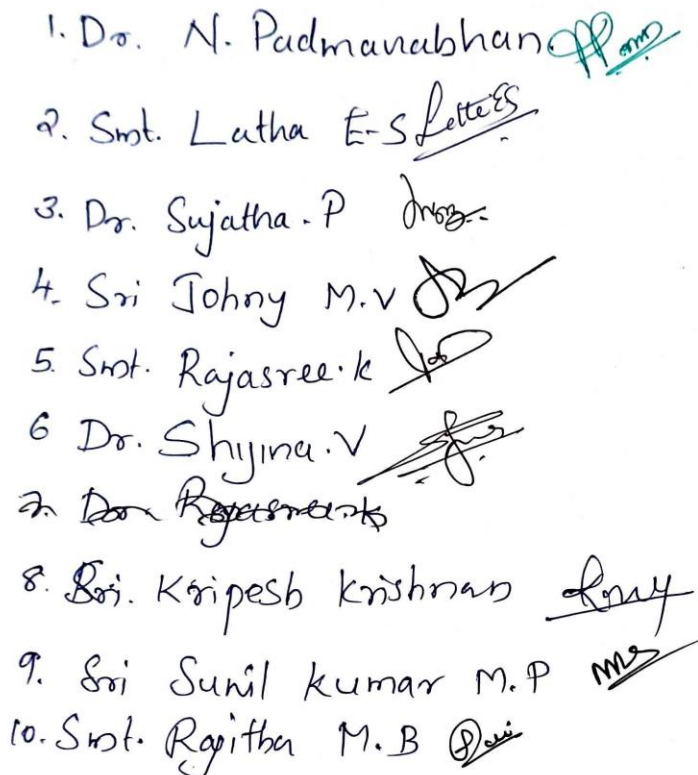 1. Dr. N. Padmanabhan
2. Smt. Latha E-S Latha ES
3. Dr. Sujatha. P
4. Sri Johny M.V
5. Smt. Rajasree.k
6 Dr. Shijina.V
7. Dr. Rajasree.k
8. Sri. Kripesh Krishnan
9. Sri Sunil Kumar M.P
10. Smt. Rajitha M.B